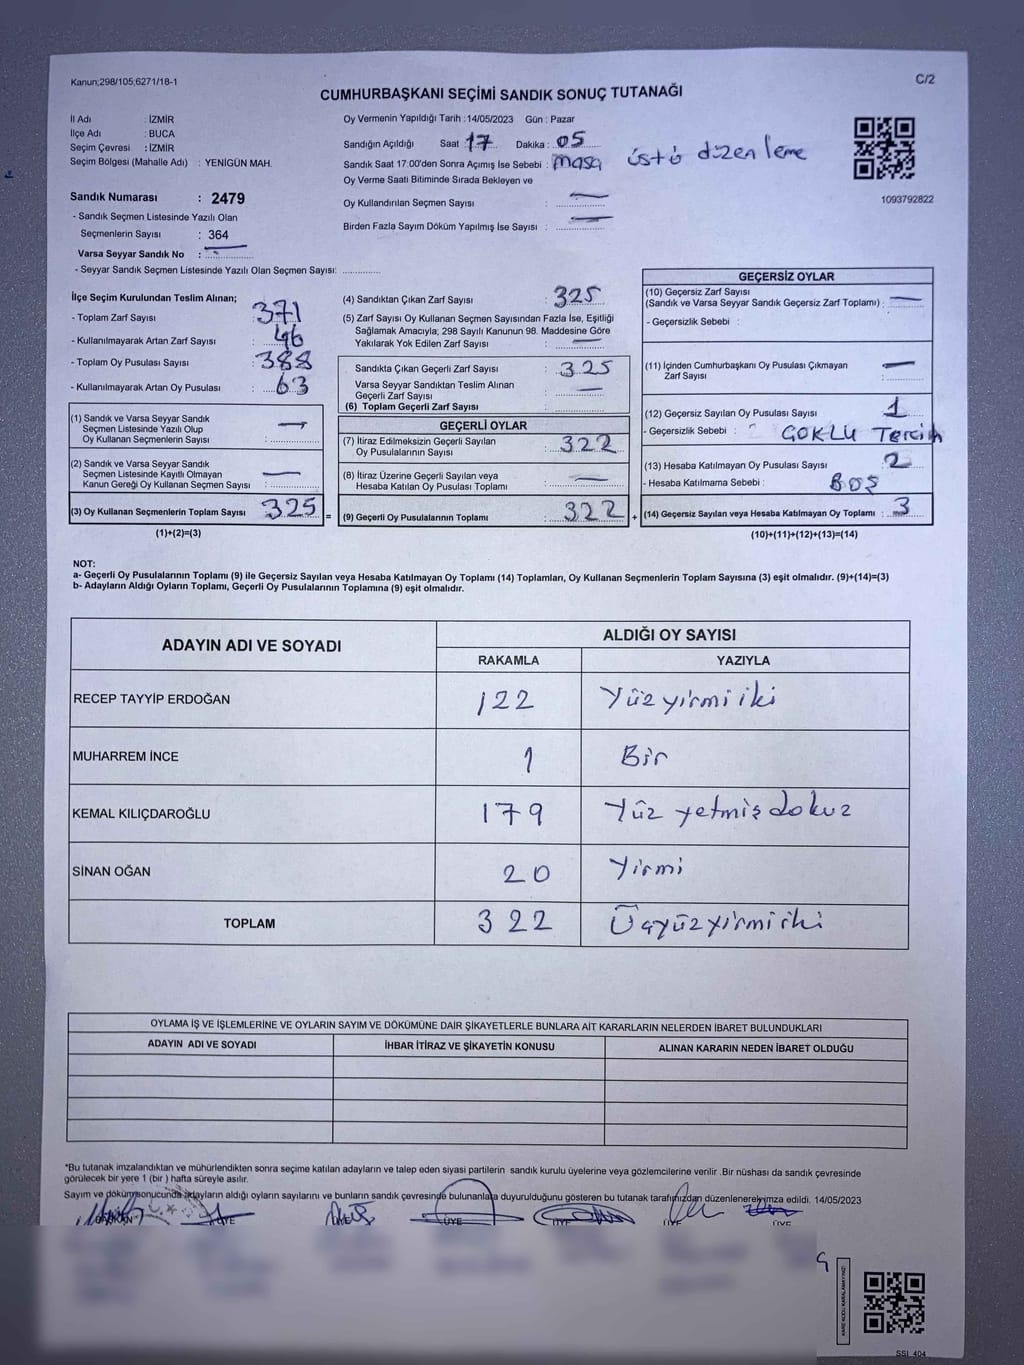 Kanun;298/105;6271/18-1
C/2
CUMHURBAŞKANI SEÇİMİ SANDIK SONUÇ TUTANAĞI
İl Adı : İZMİR
İlçe Adı : BUCA
Seçim Çevresi : İZMİR
Seçim Bölgesi (Mahalle Adı) : YENİGÜN MAH.
Oy Vermenin Yapıldığı Tarih :14/05/2023 Gün : Pazar
Sandığın Açıldığı Saat : 17 Dakika : 05
Sandık Saat 17:00'den Sonra Açımış İse Sebebi : masa üstü düzenleme
Oy Verme Saati Bitiminde Sırada Bekleyen ve
Oy Kullandırılan Seçmen Sayısı : —
Birden Fazla Sayım Döküm Yapılmış İse Sayısı : —
1093792822
Sandık Numarası : 2479
- Sandık Seçmen Listesinde Yazılı Olan
Seçmenlerin Sayısı : 364
Varsa Seyyar Sandık No : —
- Seyyar Sandık Seçmen Listesinde Yazılı Olan Seçmen Sayısı: ............
İlçe Seçim Kurulundan Teslim Alınan;
- Toplam Zarf Sayısı : 371
- Kullanılmayarak Artan Zarf Sayısı : 46
- Toplam Oy Pusulası Sayısı : 388
- Kullanılmayarak Artan Oy Pusulası : 63
(1) Sandık ve Varsa Seyyar Sandık
Seçmen Listesinde Yazılı Olup
Oy Kullanan Seçmenlerin Sayısı : —
(2) Sandık ve Varsa Seyyar Sandık
Seçmen Listesinde Kayıtlı Olmayan
Kanun Gereği Oy Kullanan Seçmen Sayısı : —
(3) Oy Kullanan Seçmenlerin Toplam Sayısı 325 =
(1)+(2)=(3)
(4) Sandıktan Çıkan Zarf Sayısı : 325
(5) Zarf Sayısı Oy Kullanan Seçmen Sayısından Fazla İse, Eşitliği
Sağlamak Amacıyla; 298 Sayılı Kanunun 98. Maddesine Göre
Yakılarak Yok Edilen Zarf Sayısı : —
Sandıkta Çıkan Geçerli Zarf Sayısı : 325
Varsa Seyyar Sandıktan Teslim Alınan
Geçerli Zarf Sayısı : —
(6) Toplam Geçerli Zarf Sayısı :
GEÇERLİ OYLAR
(7) İtiraz Edilmeksizin Geçerli Sayılan
Oy Pusulalarının Sayısı : 322
(8) İtiraz Üzerine Geçerli Sayılan veya
Hesaba Katılan Oy Pusulası Toplamı : —
(9) Geçerli Oy Pusulalarının Toplamı : 322 +
GEÇERSİZ OYLAR
(10) Geçersiz Zarf Sayısı
(Sandık ve Varsa Seyyar Sandık Geçersiz Zarf Toplamı) : —
- Geçersizlik Sebebi :
(11) İçinden Cumhurbaşkanı Oy Pusulası Çıkmayan
Zarf Sayısı : —
(12) Geçersiz Sayılan Oy Pusulası Sayısı : 1
- Geçersizlik Sebebi : ÇOKLU Tercih
(13) Hesaba Katılmayan Oy Pusulası Sayısı : 2
- Hesaba Katılmama Sebebi : BOŞ
(14) Geçersiz Sayılan veya Hesaba Katılmayan Oy Toplamı : 3
(10)+(11)+(12)+(13)=(14)
NOT:
a- Geçerli Oy Pusulalarının Toplamı (9) ile Geçersiz Sayılan veya Hesaba Katılmayan Oy Toplamı (14) Toplamları, Oy Kullanan Seçmenlerin Toplam Sayısına (3) eşit olmalıdır. (9)+(14)=(3)
b- Adayların Aldığı Oyların Toplamı, Geçerli Oy Pusulalarının Toplamına (9) eşit olmalıdır.
ADAYIN ADI VE SOYADI
ALDIĞI OY SAYISI
RAKAMLA YAZIYLA
RECEP TAYYİP ERDOĞAN 122 Yüz yirmi iki
MUHARREM İNCE 1 Bir
KEMAL KILIÇDAROĞLU 179 Yüz yetmiş dokuz
SİNAN OĞAN 20 Yirmi
TOPLAM 322 Üçyüz yirmi iki
OYLAMA İŞ VE İŞLEMLERİNE VE OYLARIN SAYIM VE DÖKÜMÜNE DAİR ŞİKAYETLERLE BUNLARA AİT KARARLARIN NELERDEN İBARET BULUNDUKLARI
ADAYIN ADI VE SOYADI İHBAR İTİRAZ VE ŞİKAYETİN KONUSU ALINAN KARARIN NEDEN İBARET OLDUĞU
*Bu tutanak imzalandıktan ve mühürlendikten sonra seçime katılan adayların ve talep eden siyasi partilerin sandık kurulu üyelerine veya gözlemcilerine verilir .Bir nüshası da sandık çevresinde
görülecek bir yere 1 (bir ) hafta süreyle asılır.
Sayım ve döküm sonucunda adayların aldığı oyların sayılarını ve bunların sandık çevresinde bulunanlara duyurulduğunu gösteren bu tutanak tarafımızdan düzenlenerek imza edildi. 14/05/2023
BAŞKAN ÜYE ÜYE ÜYE ÜYE ÜYE ÜYE
KARE KODU KARALAMAYINIZ!
SSI_404